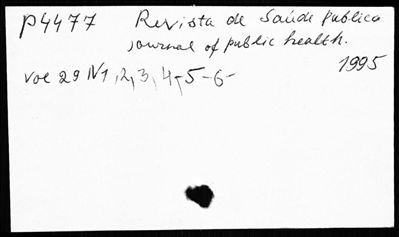 P4477 Revista de Saúde publica
journal of public health.
1995
vol 29 N1,2,3,4-5-6-